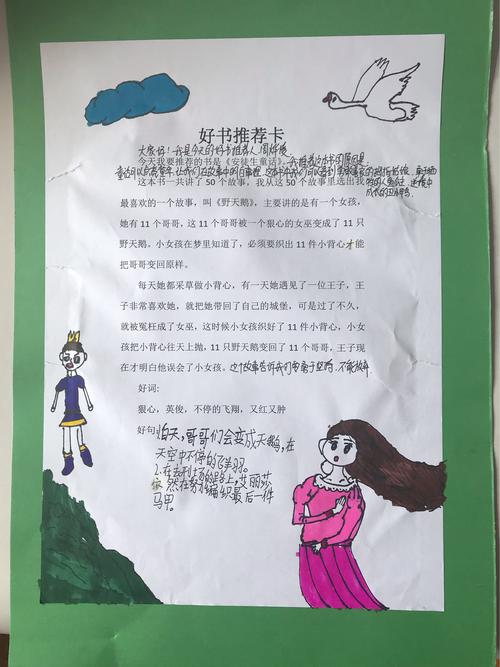 好书推荐卡
大家好！我是今天的好书推荐人
今天我要推荐的书是《安徒生童话》。我推荐这本书的原因是
这本书一共讲了 50 个故事，我从这 50 个故事里选出我
最喜欢的一个故事，叫《野天鹅》，主要讲的是有一个女孩，
她有 11 个哥哥，这 11 个哥哥被一个狠心的女巫变成了 11 只
野天鹅。小女孩在梦里知道了，必须要织出 11 件小背心才能
把哥哥变回原样。
每天她都采草做小背心，有一天她遇见了一位王子，王
子非常喜欢她，就把她带回了自己的城堡，可是过了不久，
就被冤枉成了女巫，这时候小女孩织好了 11 件小背心，小女
孩把小背心往天上抛，11 只野天鹅变回了 11 个哥哥，王子现
在才明白他误会了小女孩。这个故事告诉我们要勇于坚持，不能放弃
好词：
狠心，英俊，不停的飞翔，又红又肿
好句：白天，哥哥们会变成天鹅，在
天空中不停的飞翔。
2.在去刑场的路上，艾丽莎
依然在努力编织最后一件
马甲。